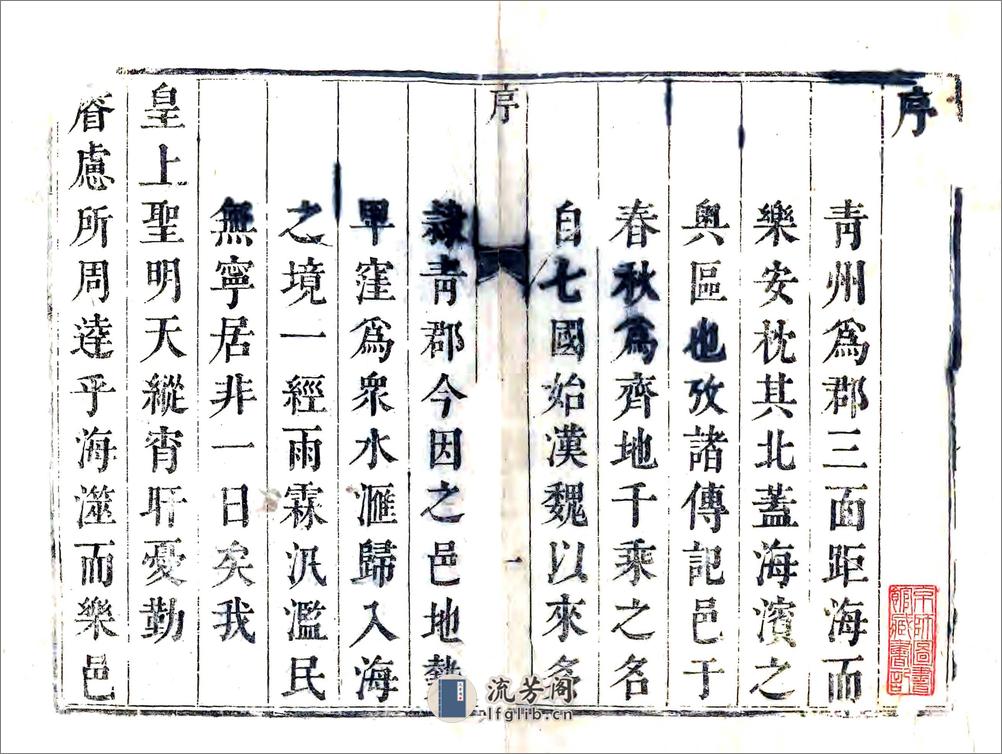 序
青州爲郡三面距海而
樂安枕其北蓋海濱之
奥區也攷諸傳記邑于
春秋爲齊地千乘之名
自七國始漢魏以來多
序
一
隷青郡今因之邑地勢
卑窪爲衆水滙歸入海
之境一經雨霖汎濫民
無寧居非一日矣我
皇上聖明天縱宵旰憂勤
睿慮所周逹乎海澨而樂邑
京師圖書
館藏書記
流芳阁
lfglib.cn